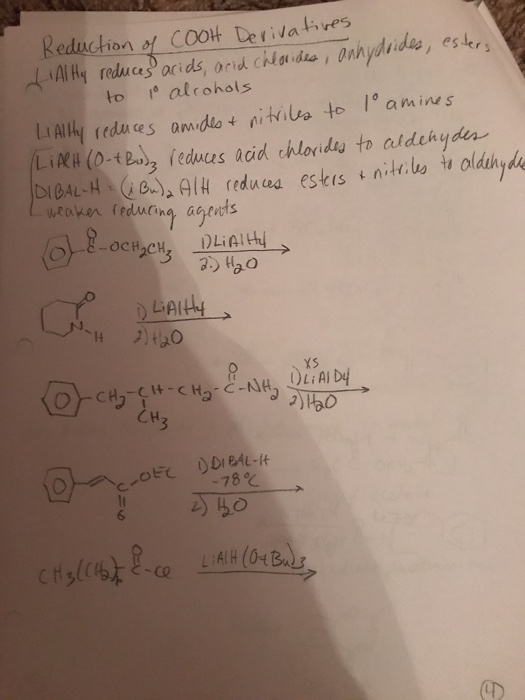 Reduction of COOH Derivatives
LiAlH4 reduces acids, acid chlorides, anhydrides, esters
to 1° alcohols
LiAlH4 reduces amides + nitriles to 1° amines
LiAlH(O-tBu)3 reduces acid chlorides to aldehydes
DIBAL-H = (iBu)2 AlH reduces esters + nitriles to aldehyde
weaker reducing agents
O
C-OCH2CH3 1) LiAlH4
2.) H2O
O
N-H 1) LiAlH4
2) H2O
O xs
-CH2-CH-CH2-C-NH2 1) LiAlD4
CH3 2) H2O
C-OEt 1) DIBAL-H
-78°C
O 2) H2O
O
C-Cl LiAlH(O-tBu)3
(4)